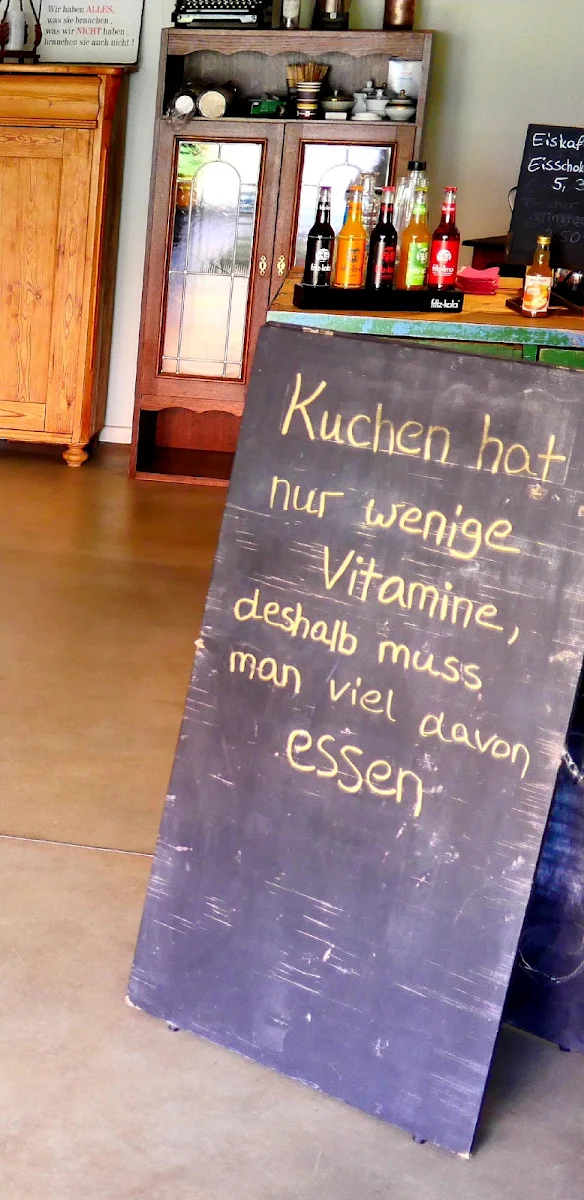 Wir haben ALLES,
was sie brauchen,
was wir NICHT haben,
brauchen sie auch nicht!
Eiskaf
Eisschok
5,
50
fritz-kola
fritz-kola
Kuchen hat
nur wenige
Vitamine,
deshalb muss
man viel davon
essen